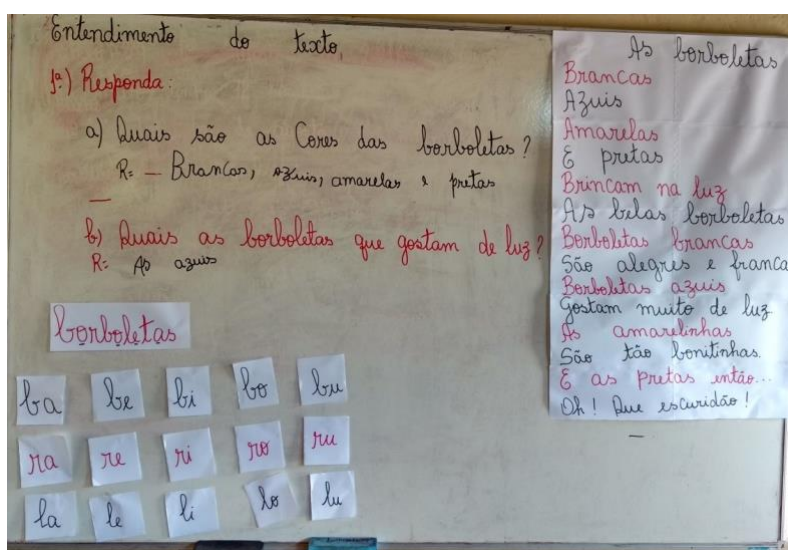 Entendimento do texto,
1ª) Responda:
a) Quais são as Cores das borboletas?
R: — Brancas, azuis, amarelas e pretas
b) Quais as borboletas que gostam de luz?
R: As azuis
borboletas
ba be bi bo bu
ra re ri ro ru
la le li lo lu
As borboletas
Brancas
Azuis
Amarelas
E pretas
Brincam na luz
As belas borboletas
Borboletas brancas
São alegres e franca
Borboletas azuis
Gostam muito de luz
As amarelinhas
São tão bonitinhas.
E as pretas então...
Oh! Que escuridão!